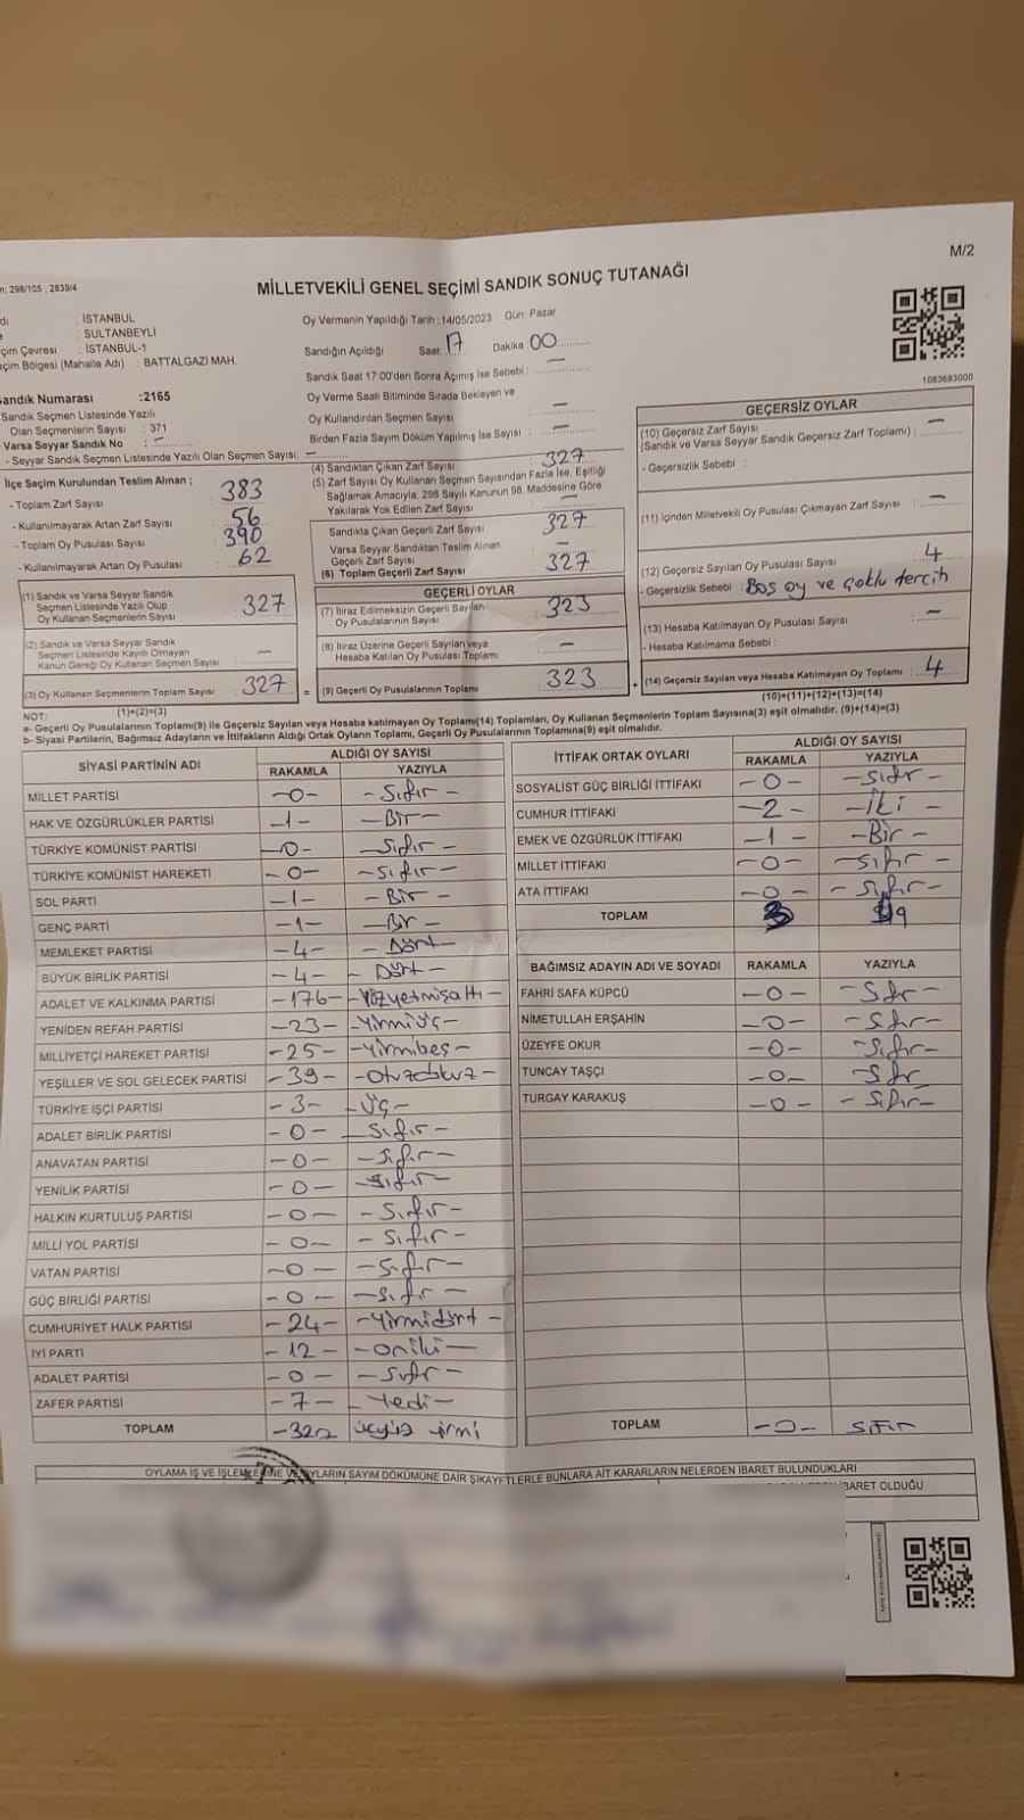 M/2
298/105 , 2839/4
MİLLETVEKİLİ GENEL SEÇİMİ SANDIK SONUÇ TUTANAĞI
dı : İSTANBUL
: SULTANBEYLİ
çim Çevresi : İSTANBUL-1
çim Bölgesi (Mahalle Adı) : BATTALGAZİ MAH.
Oy Vermenin Yapıldığı Tarih :14/05/2023 Gün: Pazar
Sandığın Açıldığı Saat: 17 Dakika 00
Sandık Saat 17:00'den Sonra Açımış İse Sebebi : —
Oy Verme Saati Bitiminde Sırada Bekleyen ve
Oy Kullandırılan Seçmen Sayısı —
Birden Fazla Sayım Döküm Yapılmış İse Sayısı : —
1083683000
andık Numarası :2165
Sandık Seçmen Listesinde Yazılı
Olan Seçmenlerin Sayısı : 371
Varsa Seyyar Sandık No : —
- Seyyar Sandık Seçmen Listesinde Yazılı Olan Seçmen Sayısı: —
İlçe Seçim Kurulundan Teslim Alınan ;
- Toplam Zarf Sayısı 383
- Kullanılmayarak Artan Zarf Sayısı 56
- Toplam Oy Pusulası Sayısı 390
- Kullanılmayarak Artan Oy Pusulası 62
(1) Sandık ve Varsa Seyyar Sandık
Seçmen Listesinde Yazılı Olup
Oy Kullanan Seçmenlerin Sayısı 327
(2) Sandık ve Varsa Seyyar Sandık
Seçmen Listesinde Kayıtlı Olmayan
Kanun Gereği Oy Kullanan Seçmen Sayısı —
(3) Oy Kullanan Seçmenlerin Toplam Sayısı 327
(1)+(2)=(3)
(4) Sandıktan Çıkan Zarf Sayısı 327
(5) Zarf Sayısı Oy Kullanan Seçmen Sayısından Fazla İse, Eşitliği
Sağlamak Amacıyla, 298 Sayılı Kanunun 98. Maddesine Göre
Yakılarak Yok Edilen Zarf Sayısı —
Sandıkta Çıkan Geçerli Zarf Sayısı 327
Varsa Seyyar Sandıktan Teslim Alınan
Geçerli Zarf Sayısı —
(6) Toplam Geçerli Zarf Sayısı 327
GEÇERLİ OYLAR
(7) İtiraz Edilmeksizin Geçerli Sayılan
Oy Pusulalarının Sayısı 323
(8) İtiraz Üzerine Geçerli Sayılan veya
Hesaba Katılan Oy Pusulası Toplamı —
= (9) Geçerli Oy Pusulalarının Toplamı 323
GEÇERSİZ OYLAR
(10) Geçersiz Zarf Sayısı
(Sandık ve Varsa Seyyar Sandık Geçersiz Zarf Toplamı) : —
- Geçersizlik Sebebi :
(11) İçinden Milletvekili Oy Pusulası Çıkmayan Zarf Sayısı —
(12) Geçersiz Sayılan Oy Pusulası Sayısı 4
- Geçersizlik Sebebi : Boş oy ve çoklu tercih
(13) Hesaba Katılmayan Oy Pusulası Sayısı —
- Hesaba Katılmama Sebebi :
+ (14) Geçersiz Sayılan veya Hesaba Katılmayan Oy Toplamı : 4
(10)+(11)+(12)+(13)=(14)
NOT:
a- Geçerli Oy Pusulalarının Toplamı(9) ile Geçersiz Sayılan veya Hesaba katılmayan Oy Toplamı(14) Toplamları, Oy Kullanan Seçmenlerin Toplam Sayısına(3) eşit olmalıdır. (9)+(14)=(3)
b- Siyasi Partilerin, Bağımsız Adayların ve İttifakların Aldığı Ortak Oyların Toplamı, Geçerli Oy Pusulalarının Toplamına(9) eşit olmalıdır.
SİYASİ PARTİNİN ADI ALDIĞI OY SAYISI
RAKAMLA YAZIYLA
MİLLET PARTİSİ -0- -Sıfır-
HAK VE ÖZGÜRLÜKLER PARTİSİ -1- -Bir-
TÜRKİYE KOMÜNİST PARTİSİ -0- -Sıfır-
TÜRKİYE KOMÜNİST HAREKETİ -0- -Sıfır-
SOL PARTİ -1- -Bir-
GENÇ PARTİ -1- -Bir-
MEMLEKET PARTİSİ -4- -Dört-
BÜYÜK BİRLİK PARTİSİ -4- -Dört-
ADALET VE KALKINMA PARTİSİ -176- -Yüzyetmişaltı-
YENİDEN REFAH PARTİSİ -23- -Yirmiüç-
MİLLİYETÇİ HAREKET PARTİSİ -25- -Yirmibeş-
YEŞİLLER VE SOL GELECEK PARTİSİ -39- -Otuzdokuz-
TÜRKİYE İŞÇİ PARTİSİ -3- -Üç-
ADALET BİRLİK PARTİSİ -0- -Sıfır-
ANAVATAN PARTİSİ -0- -Sıfır-
YENİLİK PARTİSİ -0- -Sıfır-
HALKIN KURTULUŞ PARTİSİ -0- -Sıfır-
MİLLİ YOL PARTİSİ -0- -Sıfır-
VATAN PARTİSİ -0- -Sıfır-
GÜÇ BİRLİĞİ PARTİSİ -0- -Sıfır-
CUMHURİYET HALK PARTİSİ -24- -Yirmidört-
İYİ PARTİ -12- -oniki-
ADALET PARTİSİ -0- -Sıfır-
ZAFER PARTİSİ -7- -Yedi-
TOPLAM -320 üçyüz yirmi
İTTİFAK ORTAK OYLARI ALDIĞI OY SAYISI
RAKAMLA YAZIYLA
SOSYALİST GÜÇ BİRLİĞİ İTTİFAKI -0- -Sıfır-
CUMHUR İTTİFAKI -2- -İki-
EMEK VE ÖZGÜRLÜK İTTİFAKI -1- -Bir-
MİLLET İTTİFAKI -0- -sıfır-
ATA İTTİFAKI -0- -Sıfır-
TOPLAM 3
BAĞIMSIZ ADAYIN ADI VE SOYADI RAKAMLA YAZIYLA
FAHRİ SAFA KÜPCÜ -0- -Sıfır-
NİMETULLAH ERŞAHİN -0- -Sıfır-
ÜZEYFE OKUR -0- -Sıfır-
TUNCAY TAŞÇI -0- Sıfır
TURGAY KARAKUŞ -0- -Sıfır-
TOPLAM -0- SIFIR
OYLAMA İŞ VE İŞLEMLERİNE VE OYLARIN SAYIM DÖKÜMÜNE DAİR ŞİKAYETLERLE BUNLARA AİT KARARLARIN NELERDEN İBARET BULUNDUKLARI
İBARET OLDUĞU